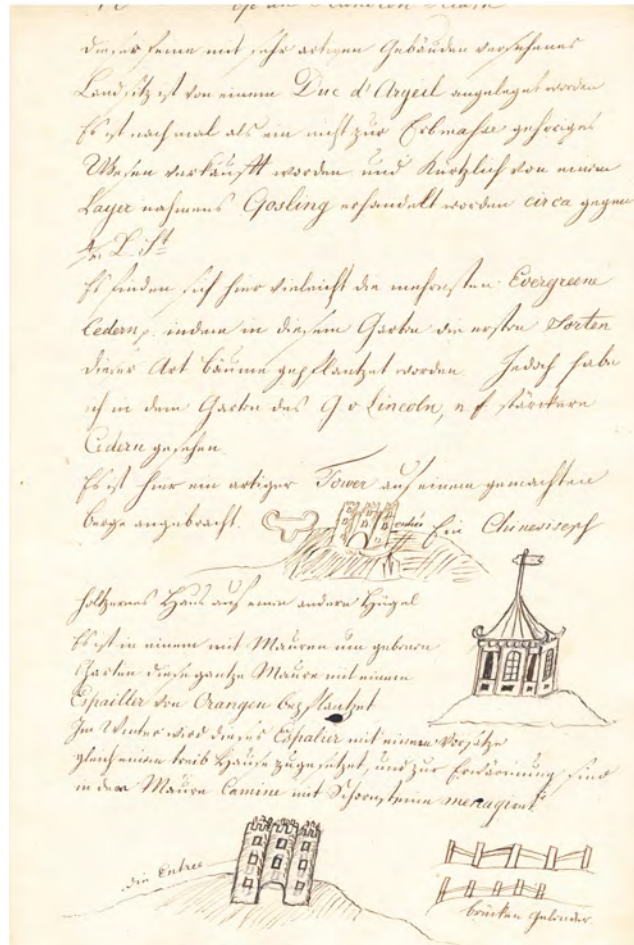 dieser feine mit sehr artigen Gebäuden versehenes
Landsitz ist von einem Duc d'Argeil angeleget worden
Es ist nach mal als ein nicht zur Erbmahse gehöriges
Wesen verkaufft worden und Kürtzlich von einem
Layer nahmens Gosling erhandelt worden circa gegen
L St
Es finden sich hier vieleicht die mehresten Evergreene
Cedern p. indem in diesem Garten die ersten Sorten
dieser Art bäume gepflantzet worden. Jedoch habe
ich in dem Garten des G v Lincoln, stärckere
Cedern gesehen.
Es ist hier ein artiger Tower auf einem gemachten
berge angebracht.
Entrée
Ein Chinesisch
holtzernes Haus auf einen andern Hügel
Es ist in einem mit Mauren um gebenen
Garten diese gantze Maure mit einem
Espallier von Orangen bepflantzet
Im Winter wird dieses Espalier mit einem Vorsatze
gleich einem treib Hause zugesetzet, und zur Erwärmung sind
in der Maure Camine mit Schornsteine menagiret
die Entree
brücken gelender.